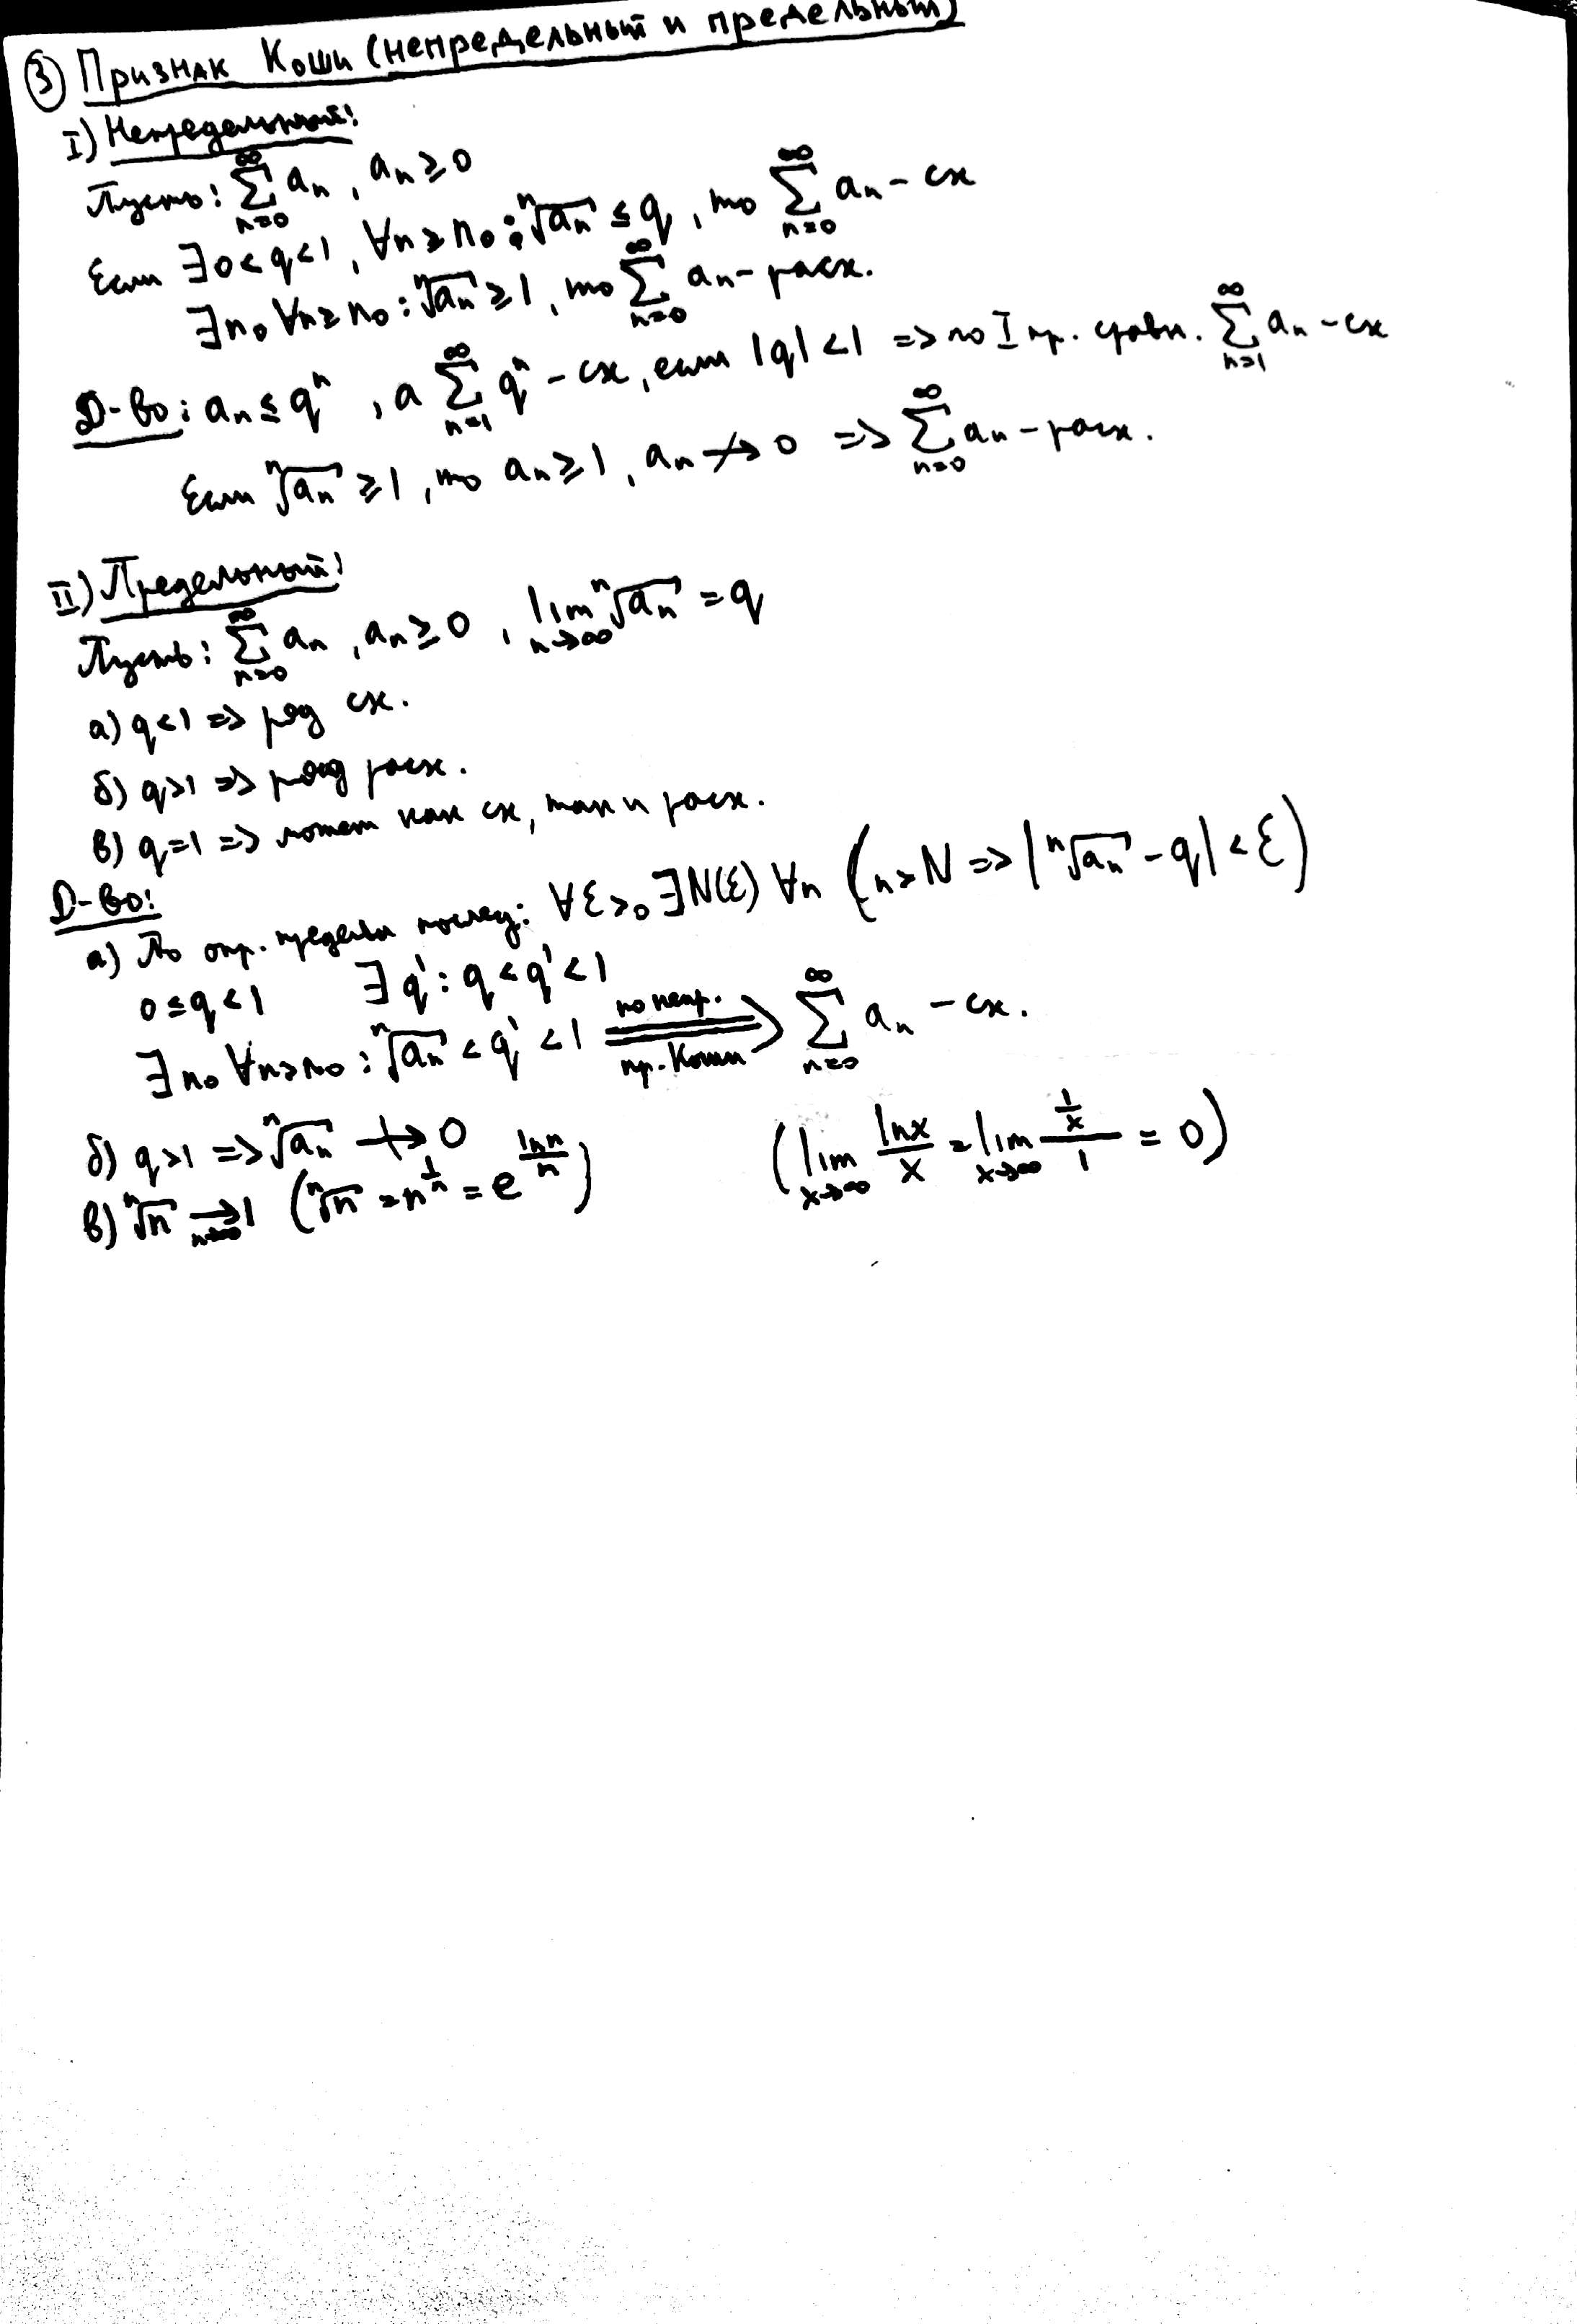 ③ Признак Коши (непредельный и предельный)
I) Непредельный:
Пусть: ∑_{n=0}^{∞} aₙ, aₙ ≥ 0
Если ∃ 0 < q < 1, ∀n ≥ n₀ : ⁿ√aₙ ≤ q, то ∑_{n=0}^{∞} aₙ - сх
∃n₀ ∀n ≥ n₀ : ⁿ√aₙ ≥ 1, то ∑_{n=0}^{∞} aₙ - расх.
Д-во: aₙ ≤ qⁿ, а ∑_{n=1}^{∞} qⁿ - сх, если |q| < 1 => по I пр. сравн. ∑_{n=1}^{∞} aₙ - сх
Если ⁿ√aₙ ≥ 1, то aₙ ≥ 1, aₙ ↛ 0 => ∑_{n=0}^{∞} aₙ - расх.
II) Предельный:
Пусть: ∑_{n=0}^{∞} aₙ, aₙ ≥ 0, lim_{n→∞} ⁿ√aₙ = q
а) q < 1 => ряд сх.
б) q > 1 => ряд расх.
в) q = 1 => может как сх, так и расх.
Д-во:
а) По опр. предела послед: ∀ε > 0 ∃N(ε) ∀n (n > N => |ⁿ√aₙ - q| < ε)
0 ≤ q < 1 ∃ q' : q < q' < 1
∃n₀ ∀n > n₀ : ⁿ√aₙ < q' < 1 =(по непр. пр. Коши)=> ∑_{n=0}^{∞} aₙ - сх.
б) q > 1 => ⁿ√aₙ ↛ 0
в) ⁿ√n →_{n→∞} 1 (ⁿ√n = n^{1/n} = e^{ln n/n}) (lim_{x→∞} ln x/x = lim_{x→∞} (1/x)/1 = 0)